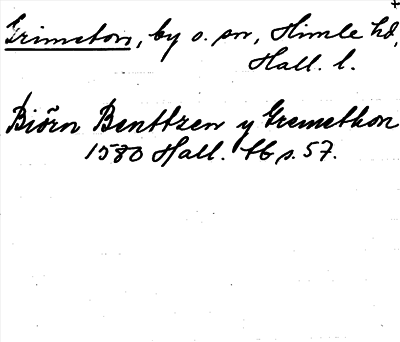 Grimeton, by o. sn, Himle hd,
Hall. l.
Biörn Benttzen y Gremethon
1580 Hall. tb s. 57.